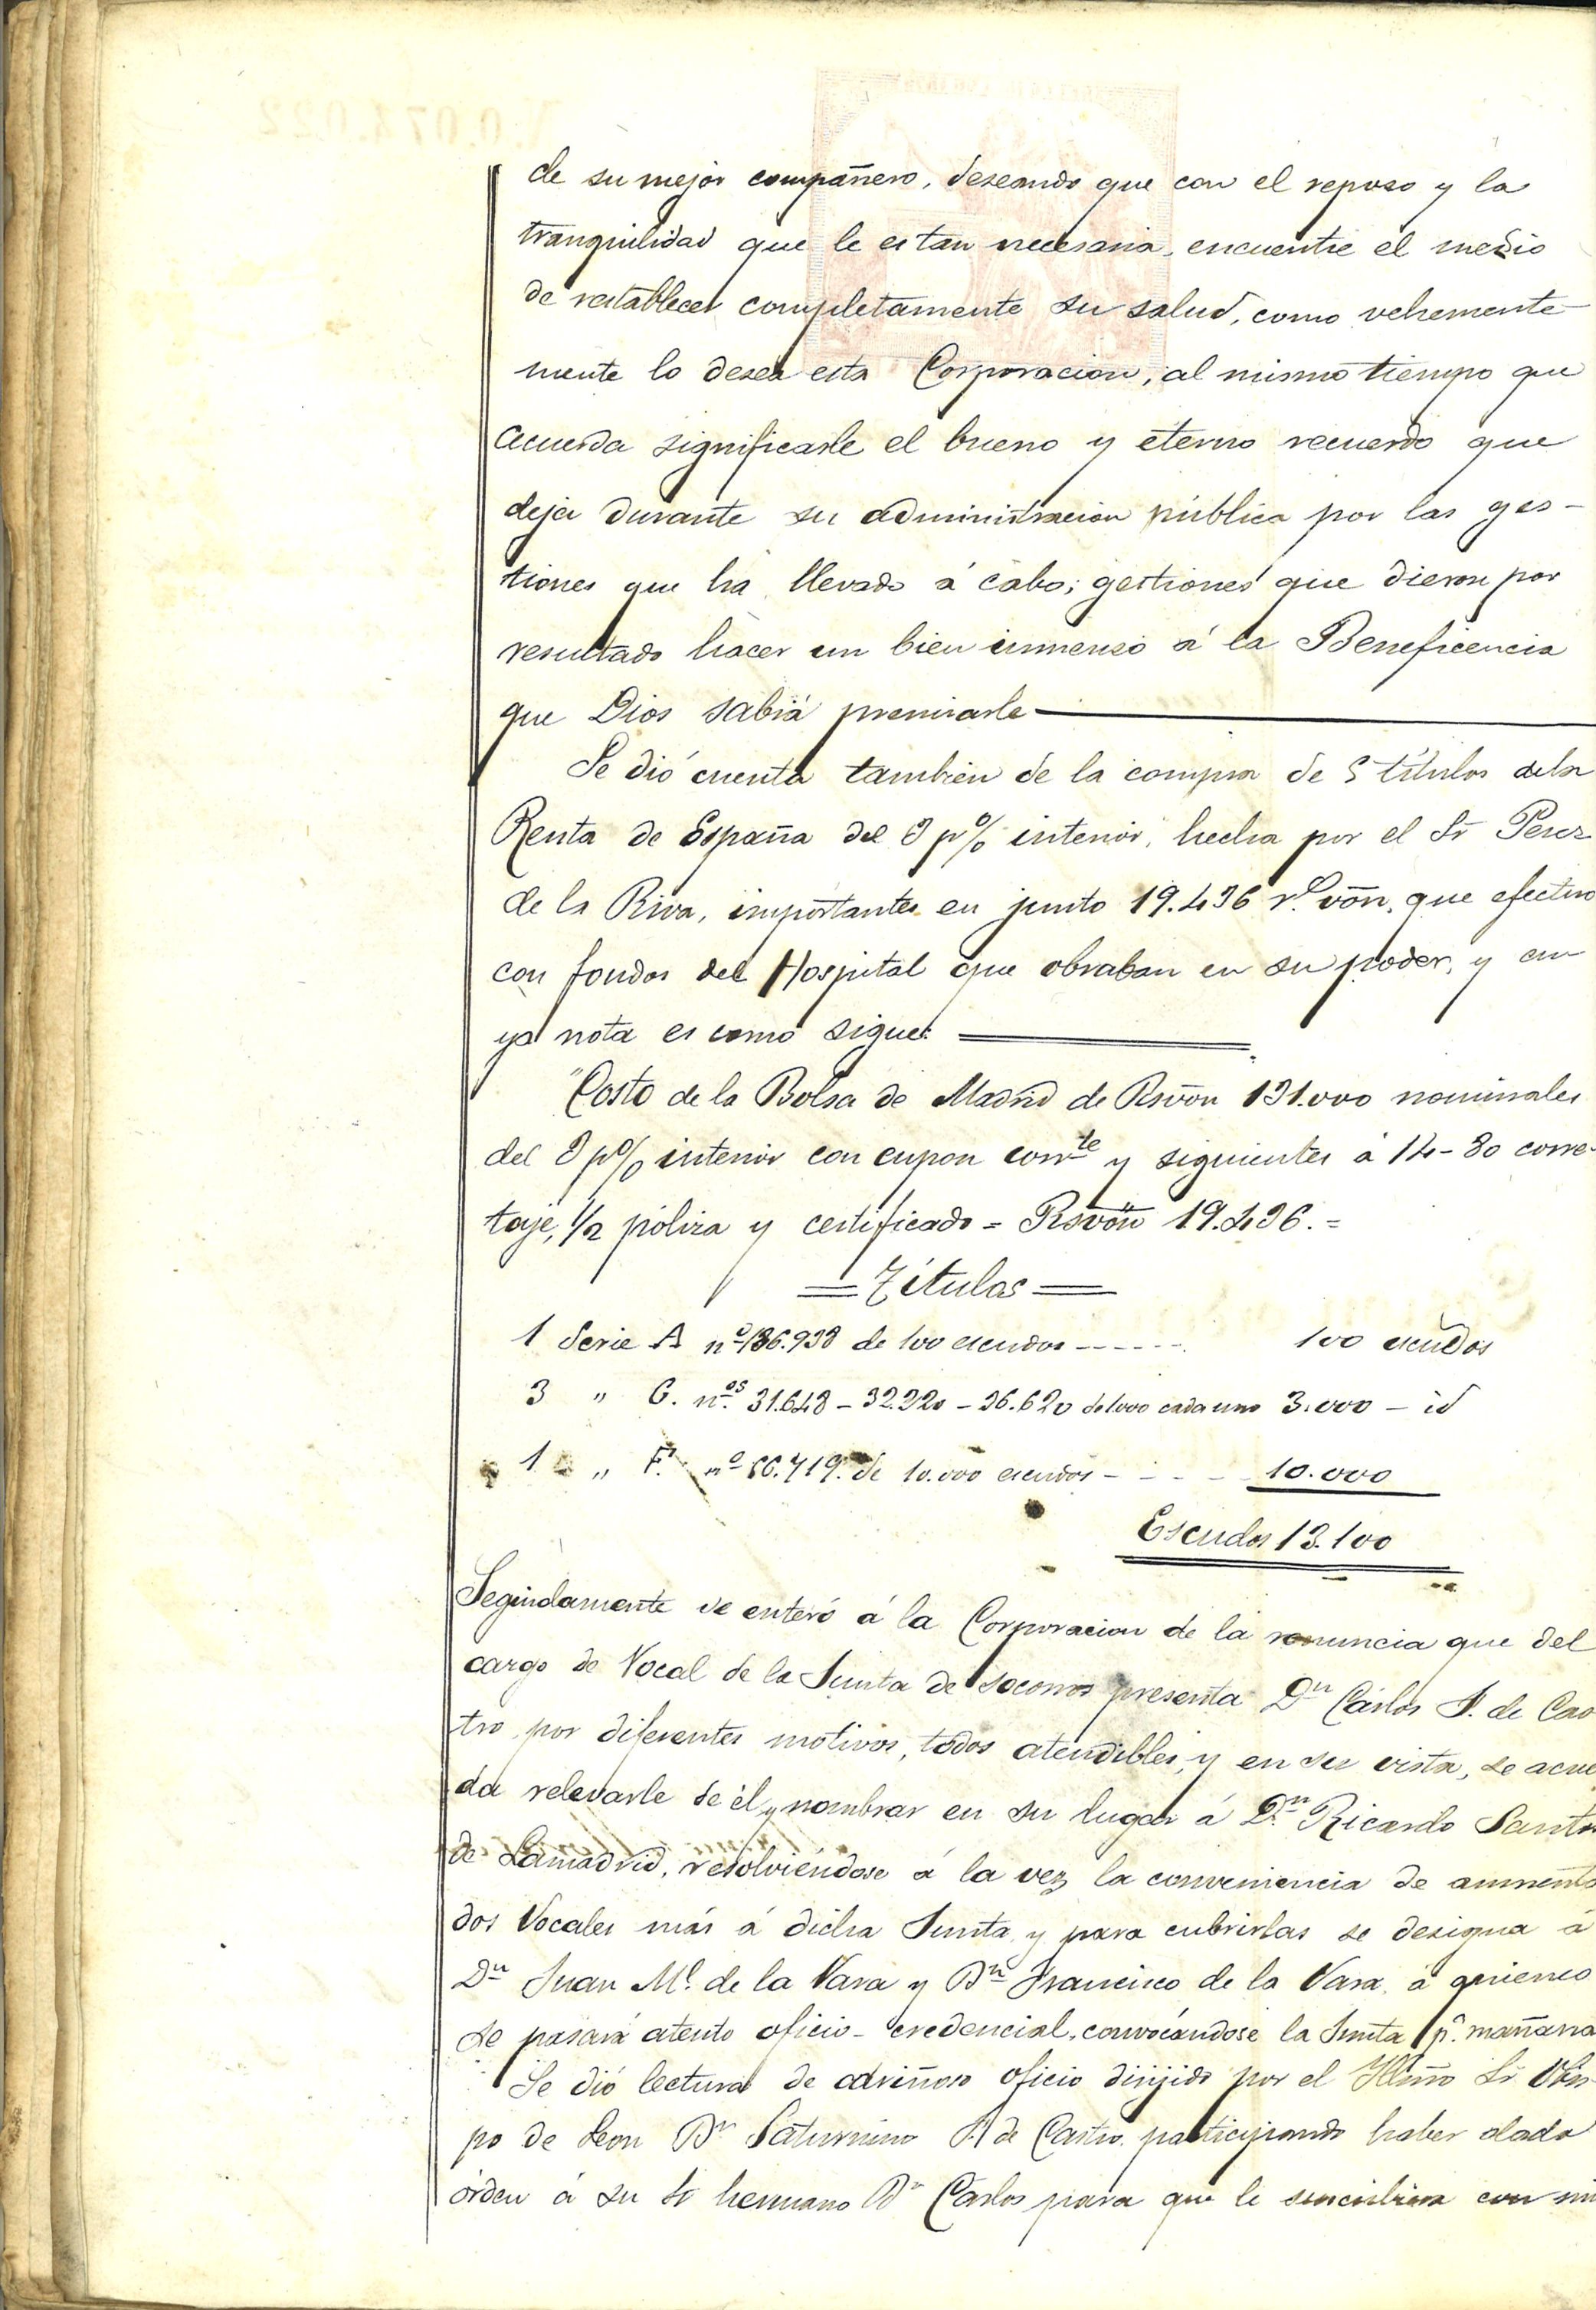 de su mejor compañero, deseando que con el reposo y la
tranquilidad que le es tan necesaria, encuentre el medio
de restablecer completamente su salud, como vehemente-
mente lo desea esta Corporacion, al mismo tiempo que
acuerda significarle el bueno y eterno recuerdo que
deja durante su administracion pública por las ges-
tiones que ha llevado á cabo; gestiones que dieron por
resultado hacer un bien inmenso á la Beneficencia
que Dios sabrá premiarle
Se dió cuenta tambien de la compra de 5 títulos de la
Renta de España del 3 p% interior, hecha por el Sr Perez
de la Riva, importantes en junto 19.436 rs. von. que efectuo
con fondos del Hospital que obraban en su poder, y cu-
ya nota es como sigue:
"Costo de la Bolsa de Madrid de Rsvon 131.000 nominales
del 3 p% interior con cupon corrte y siguientes á 14-80 corre-
taje, 1/2 póliza y certificado = Rsvon 19.436.=
=Títulos=
1 Serie A nº 136.938 de 100 escudos ------ 100 escudos
3 " C. nos. 31.648 - 32.220 - 36.620 de 1000 cada uno 3.000 - id
1 " F. nº 56.719. de 10.000 escudos - - - - 10.000
Escudos 13.100
Segindamente se enteró á la Corporacion de la renuncia que del
cargo de Vocal de la Junta de socorros presenta Dn Cárlos F. de Cas
tro por diferentes motivos, todos atendibles, y en su vista, se acue
da relevarle de él y nombrar en su lugar á Dn Ricardo Santos
de Lamadrid, resolviéndose á la vez la conveniencia de aumenta
dos Vocales más á dicha Junta y para cubrirlas se designa á
Dn Juan Ma. de la Vara y Dn Francisco de la Vara á quienes
se pasará atento oficio-credencial, convocándose la Junta pa. mañana
Se dió lectura de cariñoso oficio dirijido por el Illmo Sr Obis-
po de Leon Dn Saturnino F. de Castro participando haber dado
órden á su Sr hermano Dn Carlos para que le suscribiera con mi